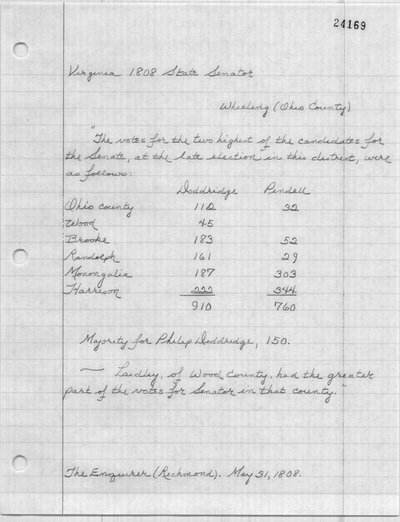 24169
Virginia 1808 State Senator
Wheeling (Ohio County)
"The votes for the two highest of the candidates for
the Senate, at the late election in this district, were
as follows:
Doddridge Pindell
Ohio County 112 32
Wood 45
Brooke 183 52
Randolph 161 29
Monongalia 187 303
Harrison 222 344
910 760
Majority for Philip Doddridge, 150.
— Laidley, of Wood County, had the greater
part of the votes for Senator in that county."
The Enquirer (Richmond). May 31, 1808.